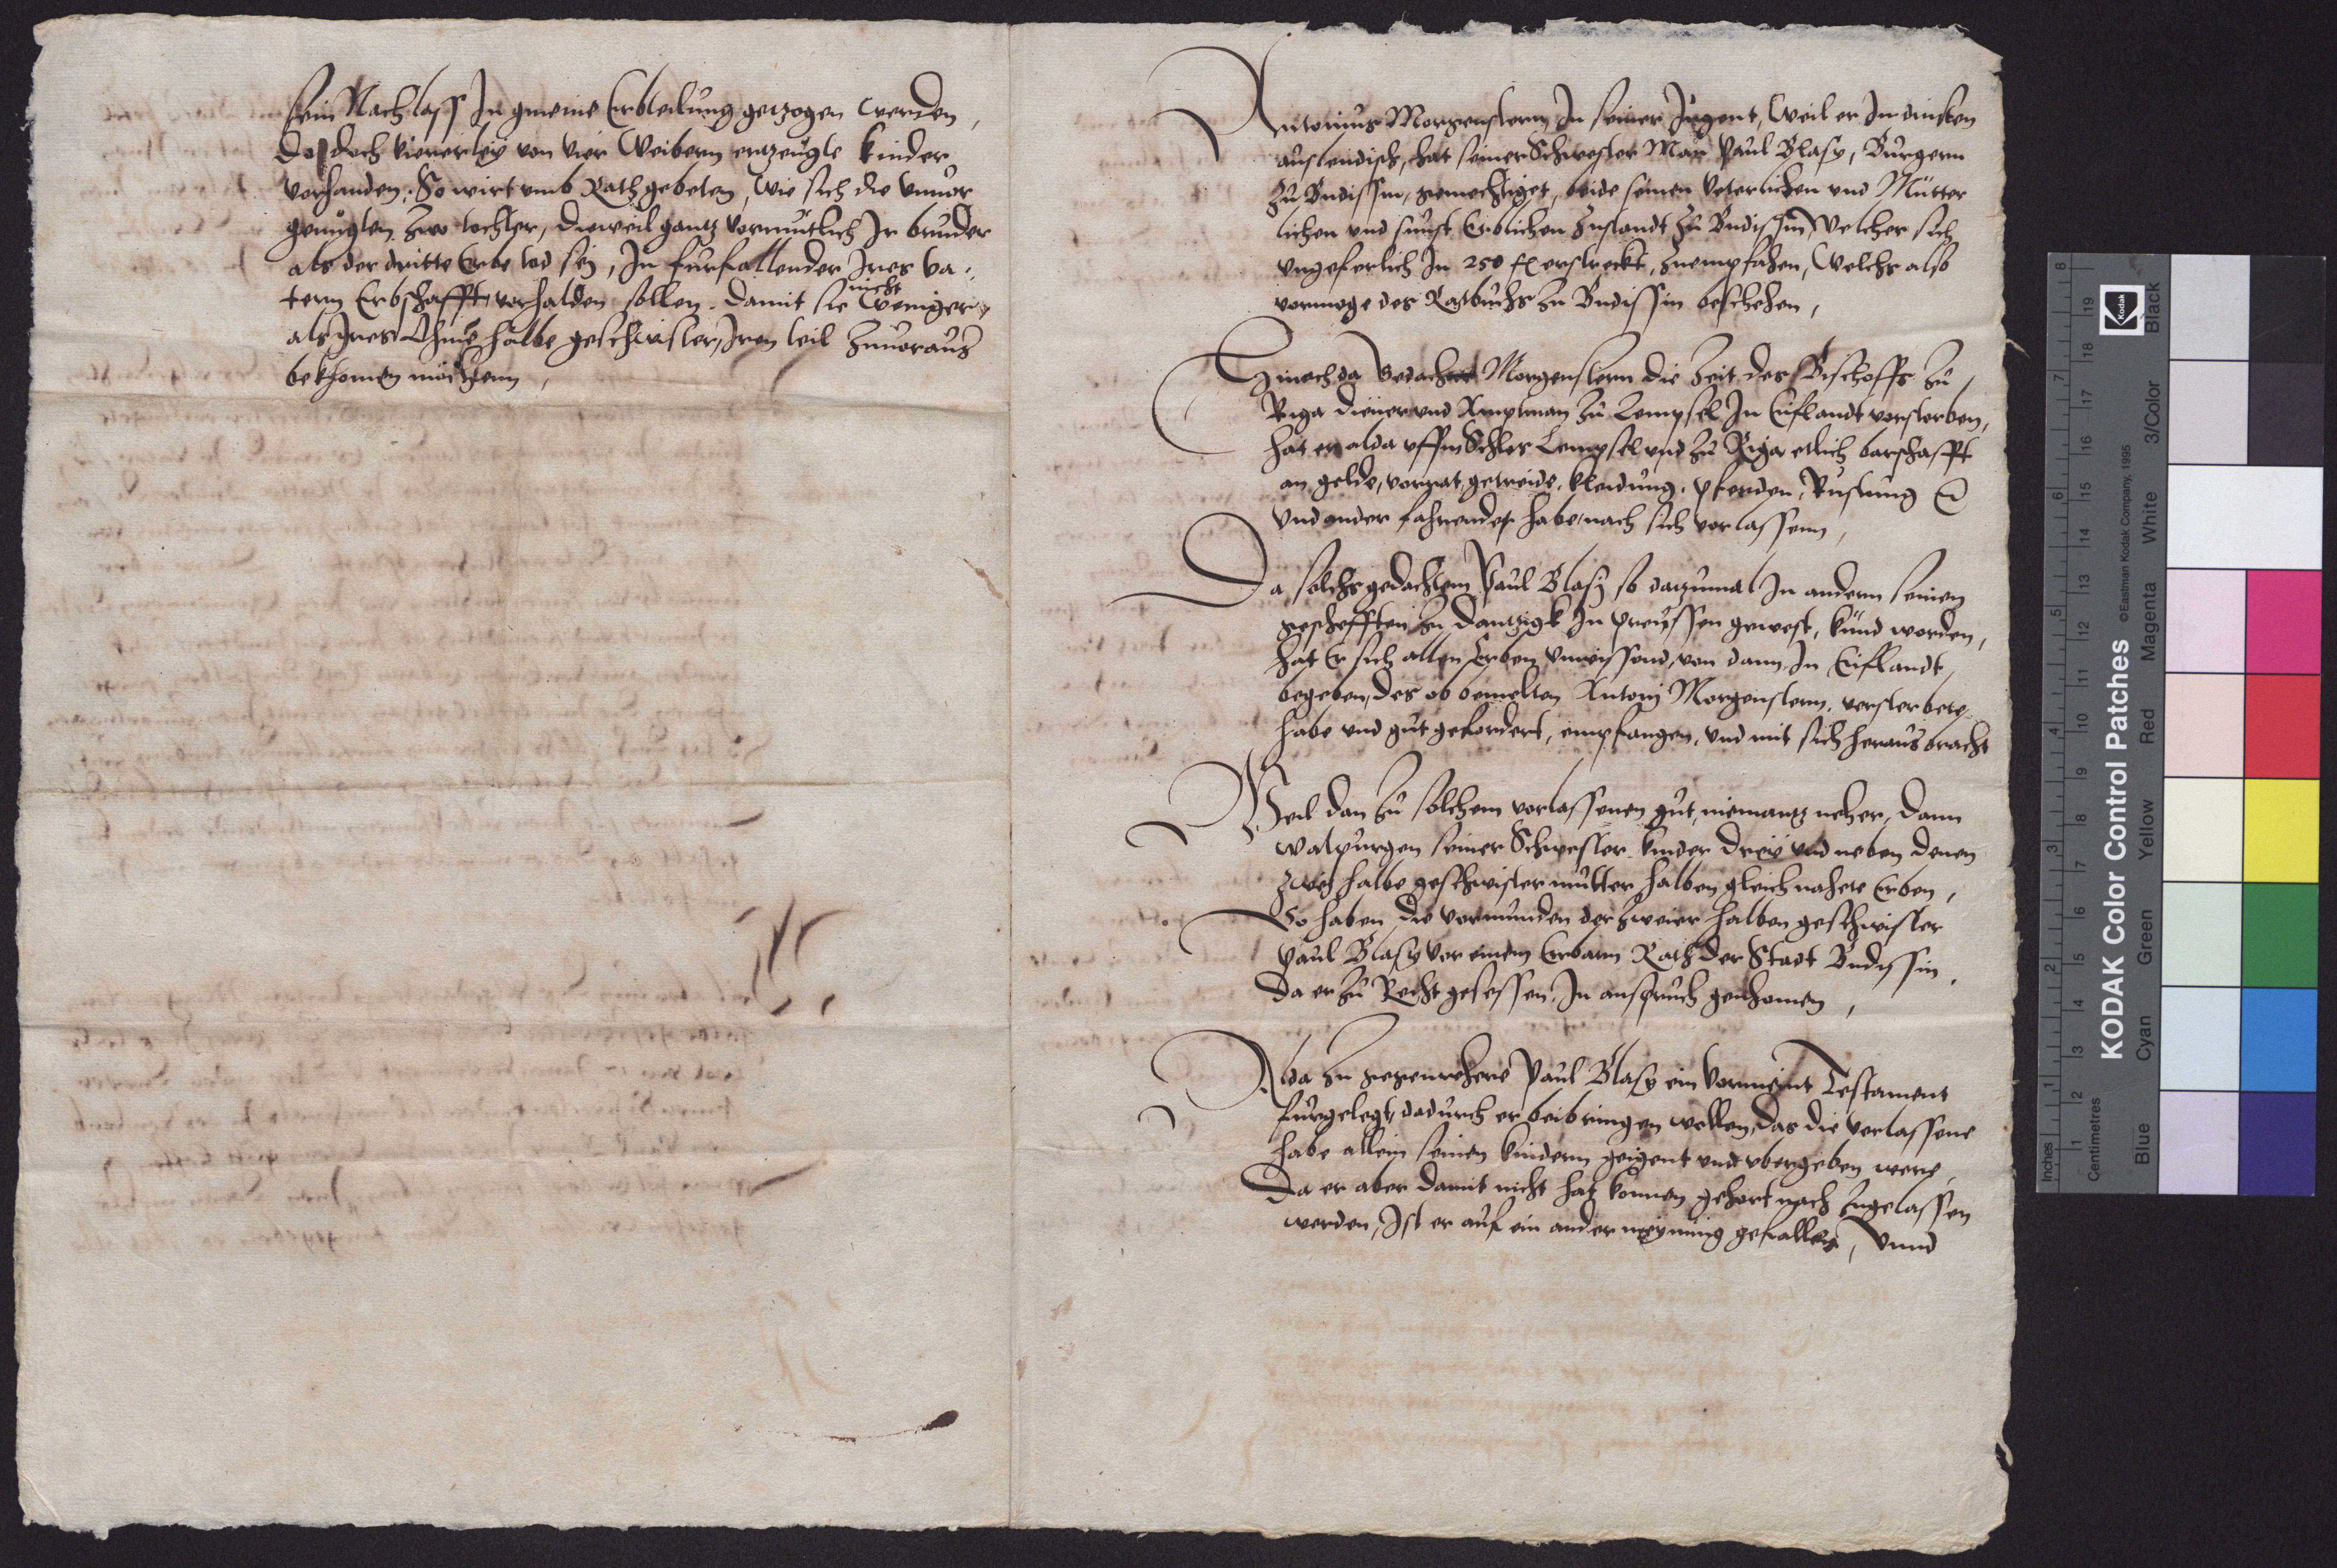 sein Nachlass In gmeine Erbteilung getzogen werden,
Do doch viererley von vier Weibern ertzeugte kinder
vorhanden. So wirt umb Rath gebeten, wie sich die unuor
genugten zwo tochter, dieweil gantz vormutlich Ir bruder
als der dritte Erbe tod sey, In furfallender Ires Va:
tern Erbschafft vorhalden sollen. Damit sie nicht weniger
als Ires Ohme halbe geschwister, Iren teil zuuoraus
bekhomen möchtenn,
Antonius Morgenstern In seiner Jugent, Weil er In dinsten
auslendisch, hat seiner Schwester Man Paul Blasy, Burgern
zu Budissin, gemechtiget, beide seinen Veterlichen und Mütter
lichen und sunst Erblichen Zustandt zu Budissin, Welcher sich
ungeferlich In 250 fl erstreckt, zuempfahen, Welchs also
vormoge des Ratbuchs zu Budissin beschehen,
Hinoch da Morgenstern die Zeit des Bischoffs zu
Riga diener und Amptman zu Lempsel In Eiflandt vorstorben,
hat er alda uffm Schlos Lempsel und zu Riga etlich barschafft
an gelde, vorrat, getreide, kleidung, Pferden, Rustung
und ander fahrender habe, nach sich vorlassenn,
Da solchs gedachtem Paul Blasy so datzumal In andern seinen
gescheften zu Dantzigk In Preussen gewest, kund worden,
hat Er sich allen Erben unwissend, von dann In Eiflandt
begeben, des ob bemelten Antonj Morgenstern, verstorbers
habe und gut gefordert, empfangen, und mit sich heraus bracht
Weil dan zu solchem vorlassenen gut, niemantz neher, dann
Walpurgen seiner Schwester kinder drey und neben denen
zwey halbe geschwister mutter halben gleich nahere Erben,
So haben die vormunden der zweier halben geschwister
Paul Blasy vor einem Erbarn Rath der Stadt Budissin,
Da er zu Recht gesessen, In anspruch genhomen,
Alda zu gegenwehere Paul Blasy ein vormeint Testament
furgelegt, dadurch er beibringen wollen, das die verlassene
habe allein seinen kindern geeigent und ubergeben were,
Da er aber damit nicht hat konnen gehort nach zugelassen
werden, Ist er auf ein ander meynung gefallen, Unnd
KODAK Color Control Patches
©Eastman Kodak Company, 1995
Kodak
Inches 1 2 3 4 5 6 7 8
Centimetres 1 2 3 4 5 6 7 8 9 10 11 12 13 14 15 16 17 18 19
Blue Cyan Green Yellow Red Magenta White 3/Color Black